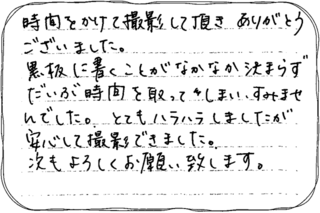 時間をかけて撮影して頂き ありがとう
ございました。
黒板に書くことがなかなか決まらず
だいぶ時間を取ってしまい、すみませ
んでした。とてもハラハラしましたが
安心して撮影できました。
次もよろしくお願い致します。